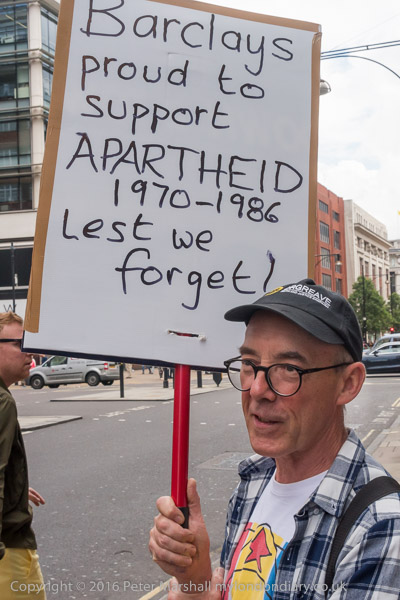 Barclays
proud to
support
APARTHEID
1970-1986
Lest we
forget!
Copyright © 2016 Peter Marshall my.londondiary.co.uk